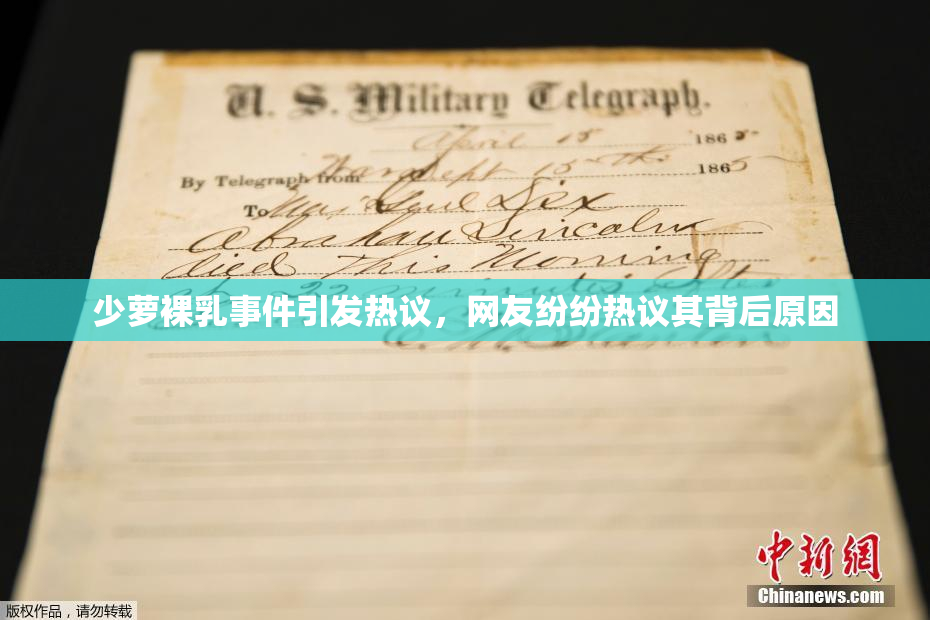 U. S. Military Telegraph.
April 15 1865
By Telegraph from War Dept 15th 1865
To Maj Genl Dix
Abraham Lincoln
died This Morning
22 minutes after
少萝裸乳事件引发热议，网友纷纷热议其背后原因
E. M. Stanton
中新网
Chinanews.com
版权作品，请勿转载